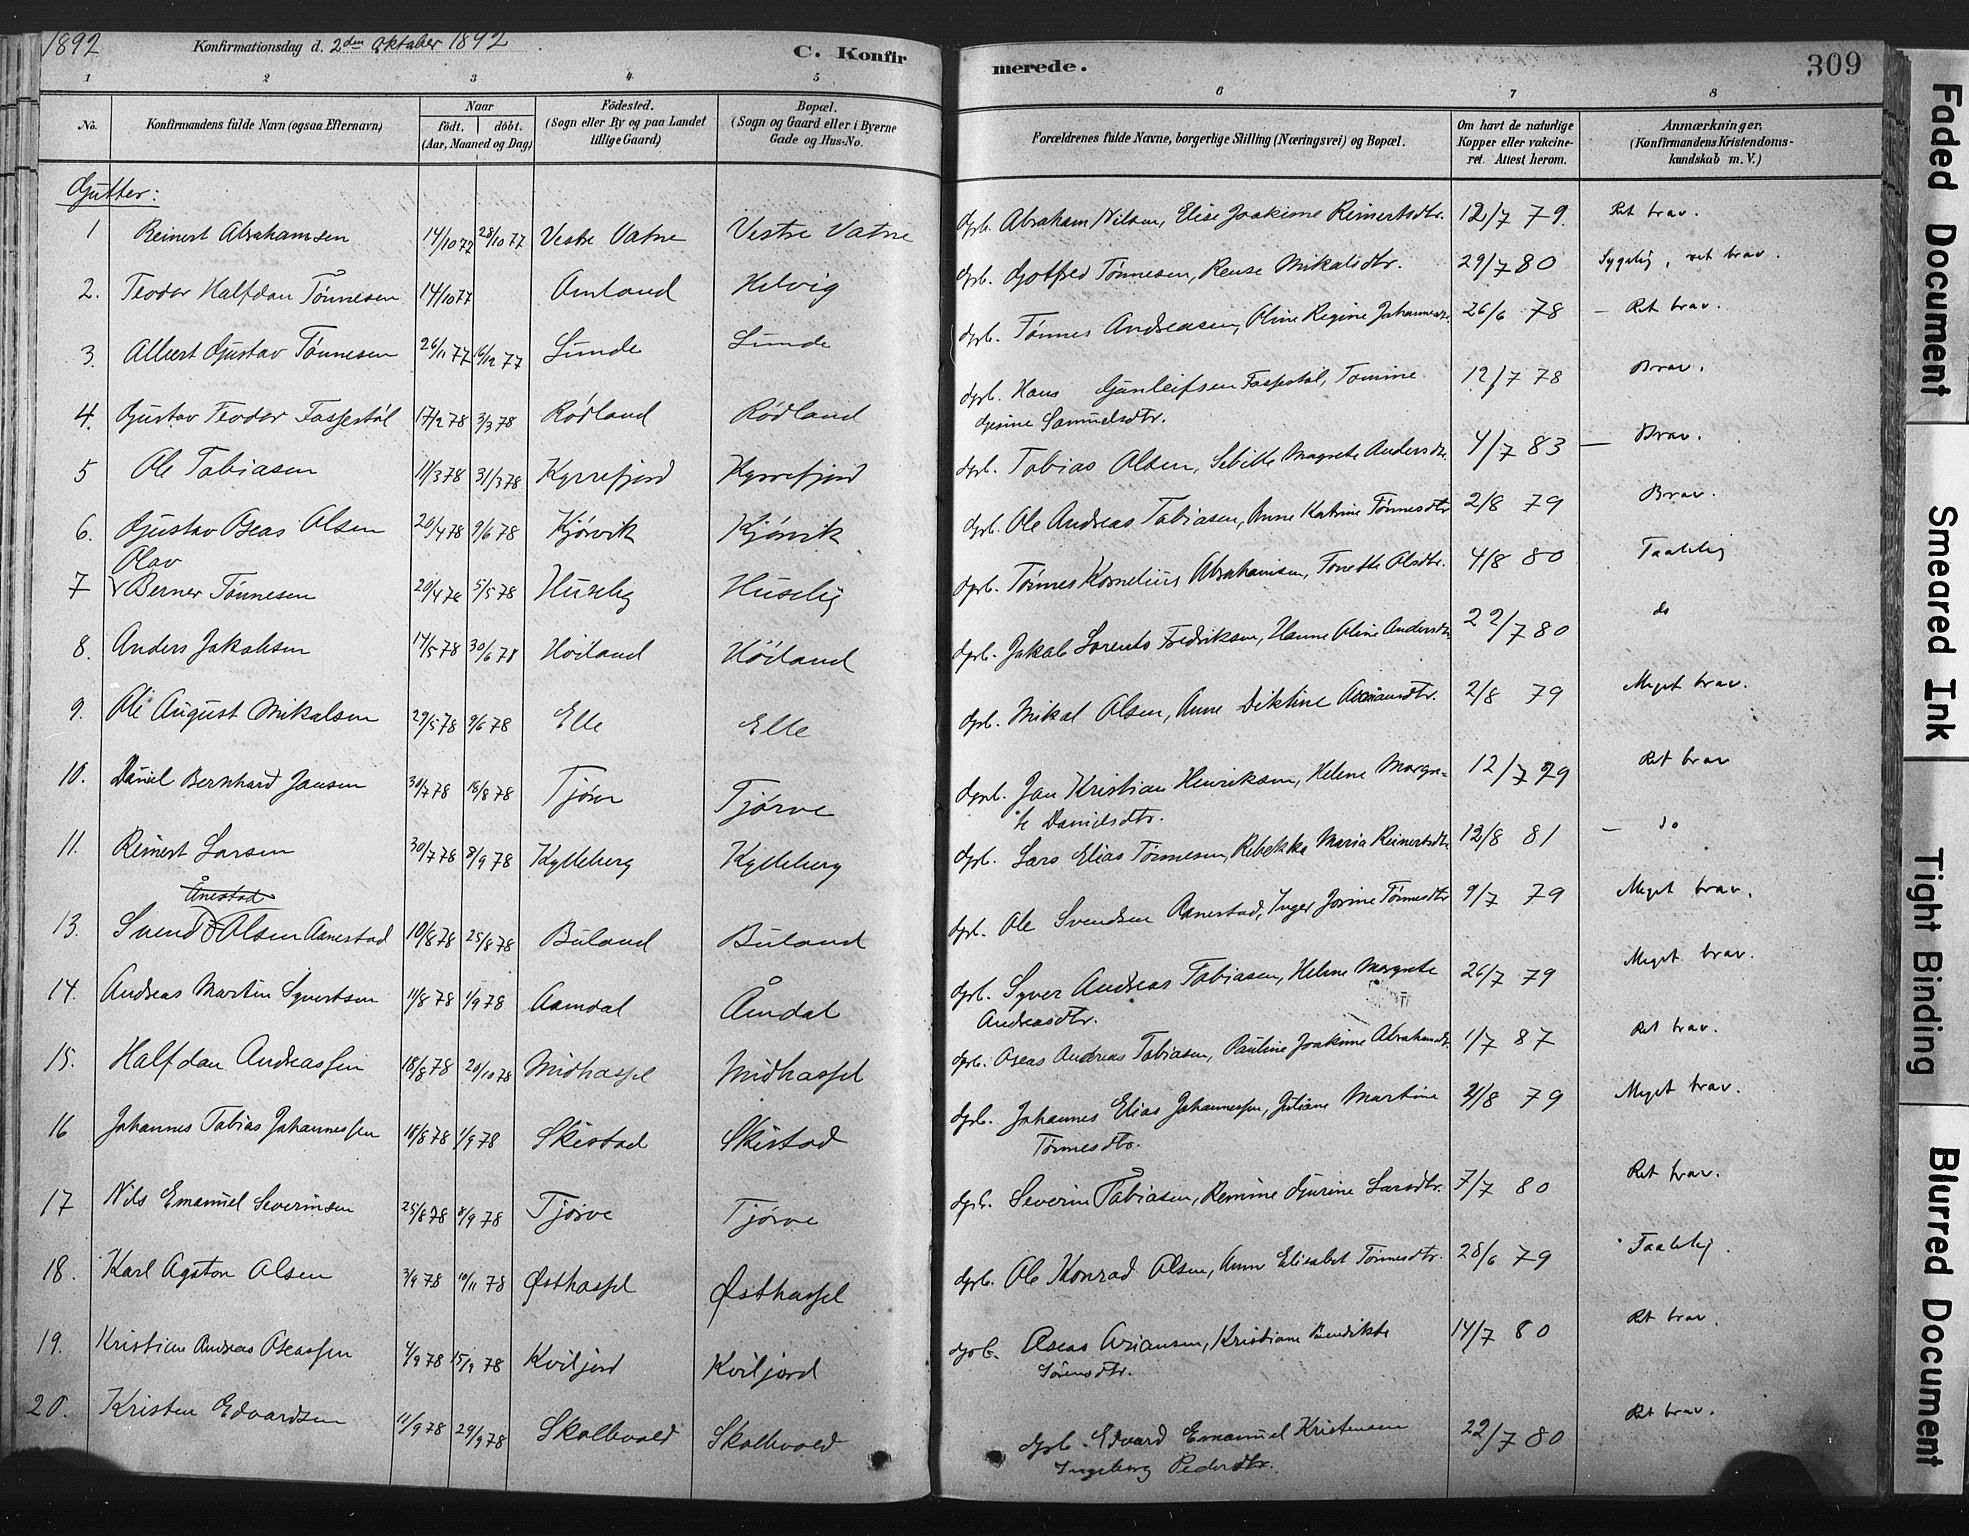 1892 Konfirmationsdag d. 2den Oktober 1892 C. Konfir
merede. 309
1 2 3 4 5 6 7 8
No. Konfirmandens fulde Navn (ogsaa Efternavn) Naar födt. döbt. (Aar, Maaned og Dag) Födested. (Sogn eller By og paa Landet tillige Gaard) Bopæl. (Sogn og Gaard eller i Byerne Gade og Hus-No. Forældrenes fulde Navne, borgerlige Stilling (Næringsvei) og Bopæl. Om havt de naturlige Kopper eller vakcineret. Attest herom. Anmærkninger. (Konfirmandens Kristendomskundskab m. V.)
Gutter:
1 Reinert Abrahamsen 14/10 77 28/10 77 Vestre Vatne Vestre Vatne Gprb. Abraham Nilsen, Elise Joakime Reinertsdtr. 12/7 79. Ret brav.
2. Teodor Halfdan Tønnesen 14/10 77 Amland Helvig Gprb. Gotfred Tønnesen, Rense Mikalsdtr. 29/7 80 Sygelig, ret brav.
3. Albert Gustav Tønnesen 26/11 77 16/12 77 Lunde Lunde Gprb. Tønnes Andreasen, Oline Regine Johannesdtr. 26/6 78 – Ret brav.
4. Gustav Teodor Fassestøl 17/2 78 3/3 78 Rødland Rødland Gprb. Hans Gunleifsen Fassestøl, Tomine
Gurine Samuelsdtr. 12/7 78 Brav.
5 Ole Tobiasen 11/3 78 31/3 78 Kyrrefjord Kyrrefjord Gprb. Tobias Olsen, Sebille Magrete Andersdtr. 4/7 83 – Brav.
6. Gustav Oseas Olsen 20/4 78 9/6 78 Kjørvik Kjørvik Gprb. Ole Andreas Tobiasen, Anne Katrine Tønnesdtr. 2/8 79 Brav.
Olav
7 Berner Tønnesen 20/4 78 5/5 78 Huselig Huselig Gprb. Tønnes Kornelius Abrahamsen, Tonette Olsdtr. 4/8 80 Taalelig
8. Anders Jakobsen 14/5 78 30/6 78 Høiland Høiland Gprb. Jakob Lorents Fredriksen, Hanne Oline Andersdtr. 22/7 80 do
9. Ole August Mikalsen 29/5 78 9/6 78 Elle Elle Gprb. Mikal Olsen, Anne Diktine Asriansdtr. 2/8 79 Meget brav.
10. Daniel Bernhard Jansen 30/7 78 18/8 78 Tjørve Tjørve Gprb. Jan Kristian Henriksen, Helene Margre-
te Danielsdtr. 12/7 79 Ret brav
11. Reinert Larsen 30/7 78 8/9 78 Kylleberg Kylleberg Gprb. Lars Elias Tønnesen, Rebekka Maria Reinertsdtr. 12/8 81 – do
Ånestad
13. Svend Olsen Aanestad 10/8 78 25/8 78 Buland Buland Gprb. Ole Svendsen Aanestad, Inger Jorine Tønnesdtr. 9/7 79 Meget brav.
14. Andreas Martin Syvertsen 11/8 78 1/9 78 Aamdal Åmdal Gprb. Syver Andreas Tobiasen, Helene Margrete
Andreasdtr. 26/7 79 Meget brav.
15. Halfdan Andreassen 18/8 78 20/10 78 Midhassel Midhassel Gprb. Oseas Andreas Tobiasen, Pauline Joakime Abrahamsdtr. 1/7 87 Ret brav.
16 Johannes Tobias Johannessen 18/8 78 1/9 78 Skeistad Skeistad Gprb. Johannes Elias Johannessen, Juliane Martine
Tønnesdtr. 21/8 79 Meget brav.
17 Nils Emanuel Severinsen 25/8 78 8/9 78 Tjørve Tjørve Gprb. Severin Tobiasen, Remine Gurine Larsdtr. 7/7 80 Ret brav.
18. Karl Agaton Olsen 3/9 78 10/11 78 Østhassel Østhassel Gprb. Ole Konrad Olsen, Anne Elisabet Tønnesdtr. 28/6 79 Taalelig.
19. Kristian Andreas Oseassen 4/9 78 15/9 78 Kviljord Kviljord Gprb. Oseas Asriansen, Kristiane Bendikte
Sørensdtr. 14/7 80 Ret brav.
20. Kristen Edvardsen 11/9 78 29/9 78 Skollevold Skollevold Gprb. Edvard Emanuel Kristensen
Ingeborg Pedersdtr. 22/7 80 Ret brav.
Faded Document
Smeared Ink
Tight Binding
Blurred Document